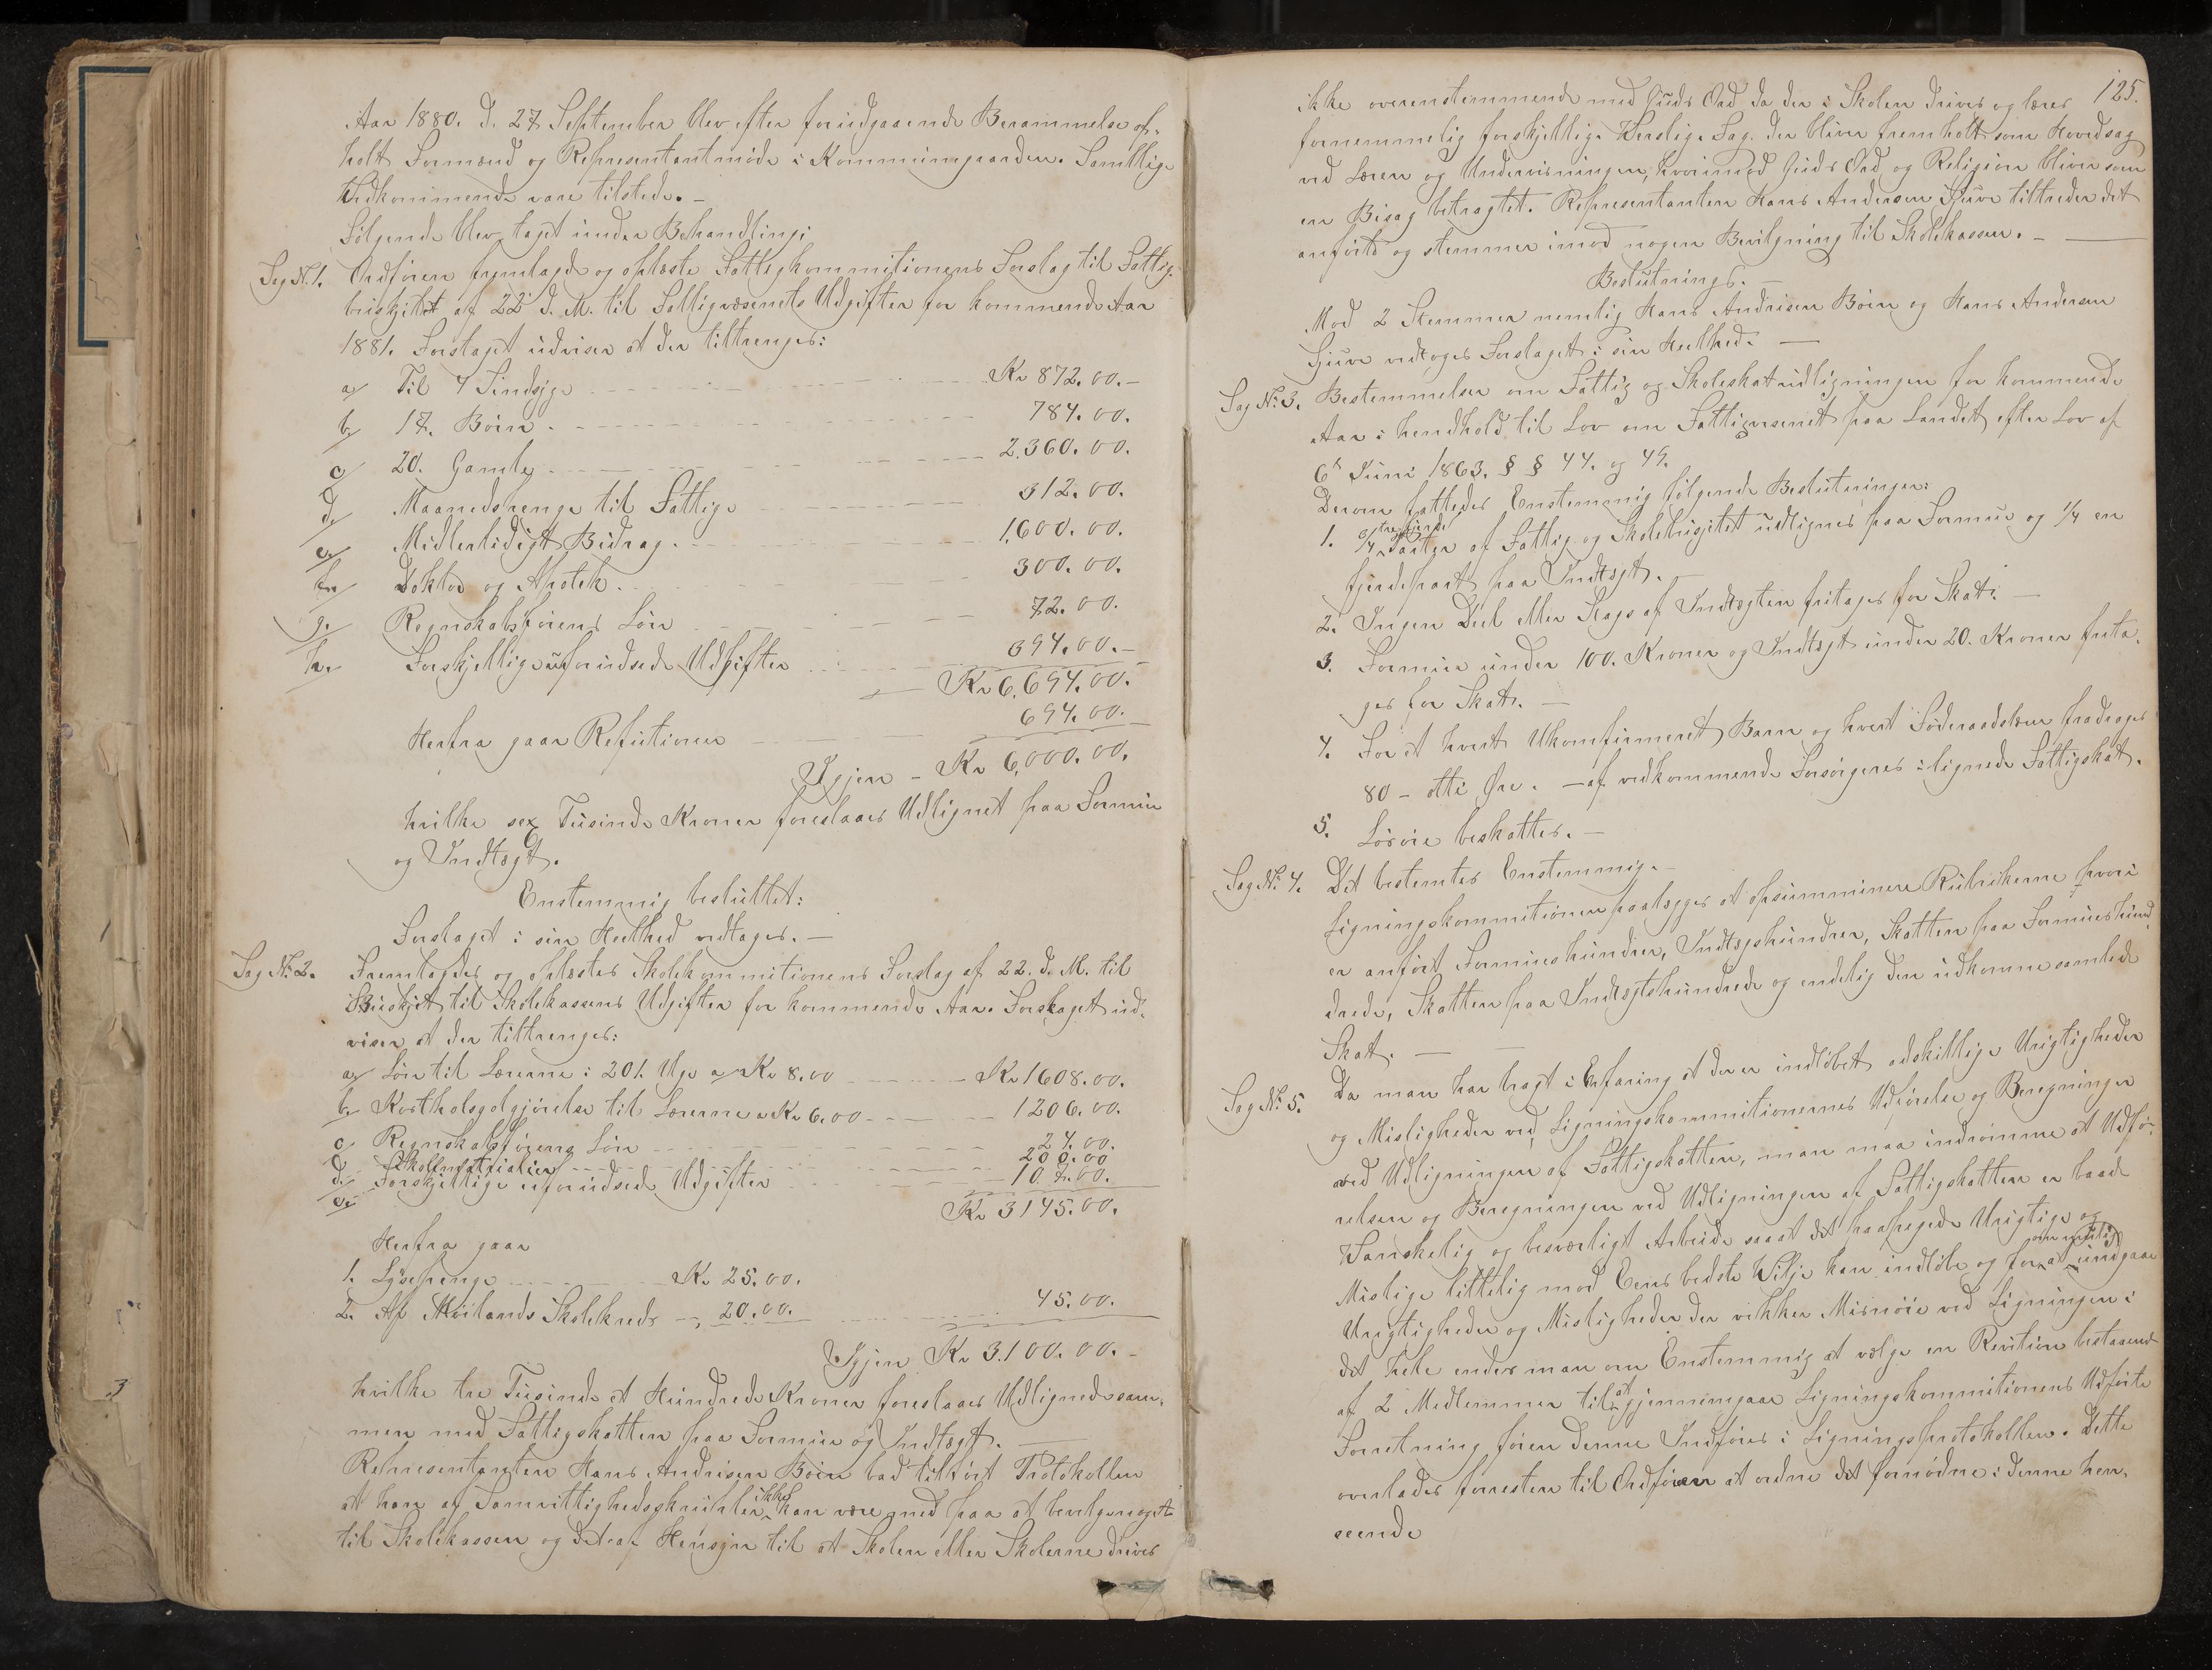 Aar 1880. d. 27 September blev efter forudgaaende Berammelse af-
holt Formænd og Representantmøde i Kommunegaarden. Samtlige
Vedkommende vare tilstede. -
Følgende blev taget under Behandling:
Sag N. 1. Ordføren fremlagde og oplæste Fattigkommitionens Forslag til Fattig-
budsjettet af 22 d. M. til Fattigvæsenets Udgifter for kommende Aar
1881. Forslaget udviser at der tiltrenges:
a/ Til 4 Sindsyge - - - Kr 872.00. -
b/ 17. Børn. - - - 784.00.
c/ 20. Gamle - - - 2.360.00.
d/ Maanedspenge til Fattige - - - 312.00.
e/ Midlertidigt Bidrag. - - - 1,600.00.
f/ Doktor og Apotek. - - - 300.00.
g/ Regnskabsførerens Løn - - - 72.00.
h/ Forskjellige uforudsede Udgifter - - - 394.00. -
Kr 6,694.00.
Herfra gaar Refutioner - - - 694.00.
Igjen - Kr 6,000.00.
hvilke sex Tusinde Kroner foreslaaes Udlignet paa Formue
og Indtægt.
Enstemmig besluttet:
Forslaget i sin Heelhed vedtages. -
Sag N: 2. Fremlagdes og oplæstes Skolekommitionens Forslag af 22. d. M. til
Budsjet til Skolekassens Udgifter for kommende Aar. Forslaget ud-
viser at der tiltrenges:
a/ Løn til Lærerne i 201. Uge a/ Kr 8.00 - - - Kr 1608.00.
b/ Kostholsgolgjørelse til Lærerne a Kr 6.00 - - - 1206.00.
c/ Regnskabsførerens Løn - - - 24.00.
d/ Skolematrialier - - - 200.00
e/ Forskjellige uforudsede Udgifter - - - 107.00.
Kr 3145.00.
Herfra gaar
1. Lysepenge - - - Kr 25.00.
2. Af Moilands Skolekreds - „ 20.00. - - - 45.00.
Igjen Kr 3.100.00. -
hvilke tre Tusinde et Hundrede Kroner foreslaaes Udlignede sam-
men med Fattigskatten paa Formue og Indtægt. -
Representanten Hans Andresen Bøen bad tilført Protokollen
at han af Samvittighedsskrupler ikke kan være med paa at bevilge noget
til Skolekassen og det af Hensyn til at Skolen eller Skolerne drives
125.
ikke overenstemmende med Guds Ord da der i Skolen drives og læres
fornemmelig forskjellige Verslige Fag. der bliver fremholt som Hovedsag
ved Læren og Undervisningen, hvorimod Guds Ord og Religion bliver som
en Bisag betragtet. Representanten Hans Andersen Gjuve tiltreder det
anførte og stemmer imod nogen Bevilgning til Skolekassen. -
Beslutninge. -
Mod 2 Stemmer nemlig Hans Andresen Bøen og Hans Andersen
Gjuve vedtoges Forslaget i sin Heelhed. -
Sag N: 3. Bestemmelser om Fattig og Skoleskatudligningen for kommende
Aar i henhold til Lov om Fattigvæsenet paa Landet efter Lov af
6te Juni 1863. § § 44. og 49.
Derom fattedes Enstemmig følgende Beslutninger:
1. 3/4 tre fjerde Parter af Fattig og Skolebusjetet udlignes paa Formue og 1/4 en
fjerdepart paa Indtægt. -
2. Ingen Deel eller Slags af Indtægten fritages for Skat. -
3. Formue under 100. Kroner og Indtægt under 20. Kroner frita-
ges for Skat. -
4. For et hvert Ukomfirmeret Barn og hvert Føderaadslem fradrages
80 - otti Øre. - af vedkommende Forsørgeres ilignede Fattigskat.
5. Løsøre beskattes. -
Sag N: 4. Det bestemtes Enstemmig. -
Ligningskommitionen paalægges at opsumminere Rubrikerne hvori
er anført Formueshundrer, Indtægshundrer, Skatten paa Formueshund-
drede, Skatten paa Indtægtshundrede og endelig den udkomne samlede
Skat. -
Sag N: 5. Da man har bragt i Erfaring at der er indløbet adskillige Urigtigheder
og Misligheder ved Ligningskommitionernes Udførelse og Beregninger
ved Udligningen af Fattigskatten, man maa indrømme at Udfø-
relsen og Beregningen ved Udligningen af Fattigskatten er baade
Vanskelig og besværligt Arbeide saa at det paapegede Urigtige og
Mislige lettelig mod Eens bedste Vilje kan indløbe og for om mulig at undgaae
Urigtigheder og Misligheder der vekker Misnøie ved Ligningen i
det hele endes man om Enstemmig at vælge en Revition bestaaende
af 2 Medlemmer til at gjennemgaae Ligningskommitionens Udførte
Forretning føren denne Indføres i Ligningsprotokollen. Dette
overlades forresten til Ordføren at ordne det fornødne i denne hen-
seende